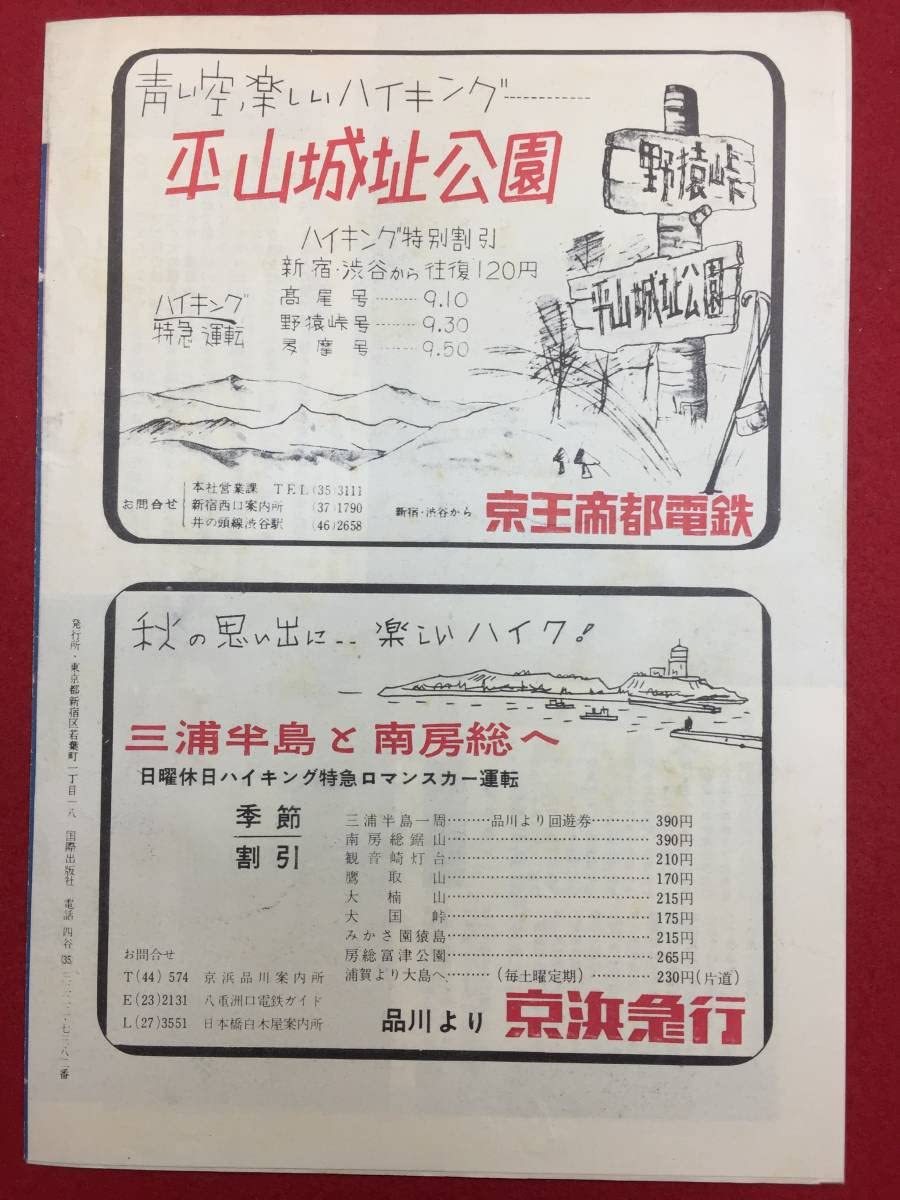 青い空、楽しいハイキング----------
平山城址公園
野猿峠
平山城址公園
ハイキング特別割引
新宿・渋谷から往復120円
ハイキング
特急運転
高尾号………9.10
野猿峠号……9.30
多摩号………9.50
お問合せ
本社営業課 TEL(35)3111
新宿西口案内所 (37)1790
井の頭線渋谷駅 (46)2658
新宿・渋谷から 京王帝都電鉄
秋の思い出に‥楽しいハイク!
三浦半島と南房総へ
日曜休日ハイキング特急ロマンスカー運転
季節
割引
三浦半島一周………品川より回遊券…………390円
南房総鋸山……………………………………390円
観音崎灯台……………………………………210円
鷹取山…………………………………………170円
大楠山…………………………………………215円
大国峠…………………………………………175円
みかさ園猿島…………………………………215円
房総富津公園…………………………………265円
浦賀より大島へ……(毎土曜定期)…………230円(片道)
お問合せ
T(44) 574 京浜品川案内所
E(23)2131 八重洲口電鉄ガイド
L(27)3551 日本橋白木屋案内所
品川より 京浜急行
発行所・東京都新宿区若葉町一丁目一八 国際出版社 電話 四谷(35)